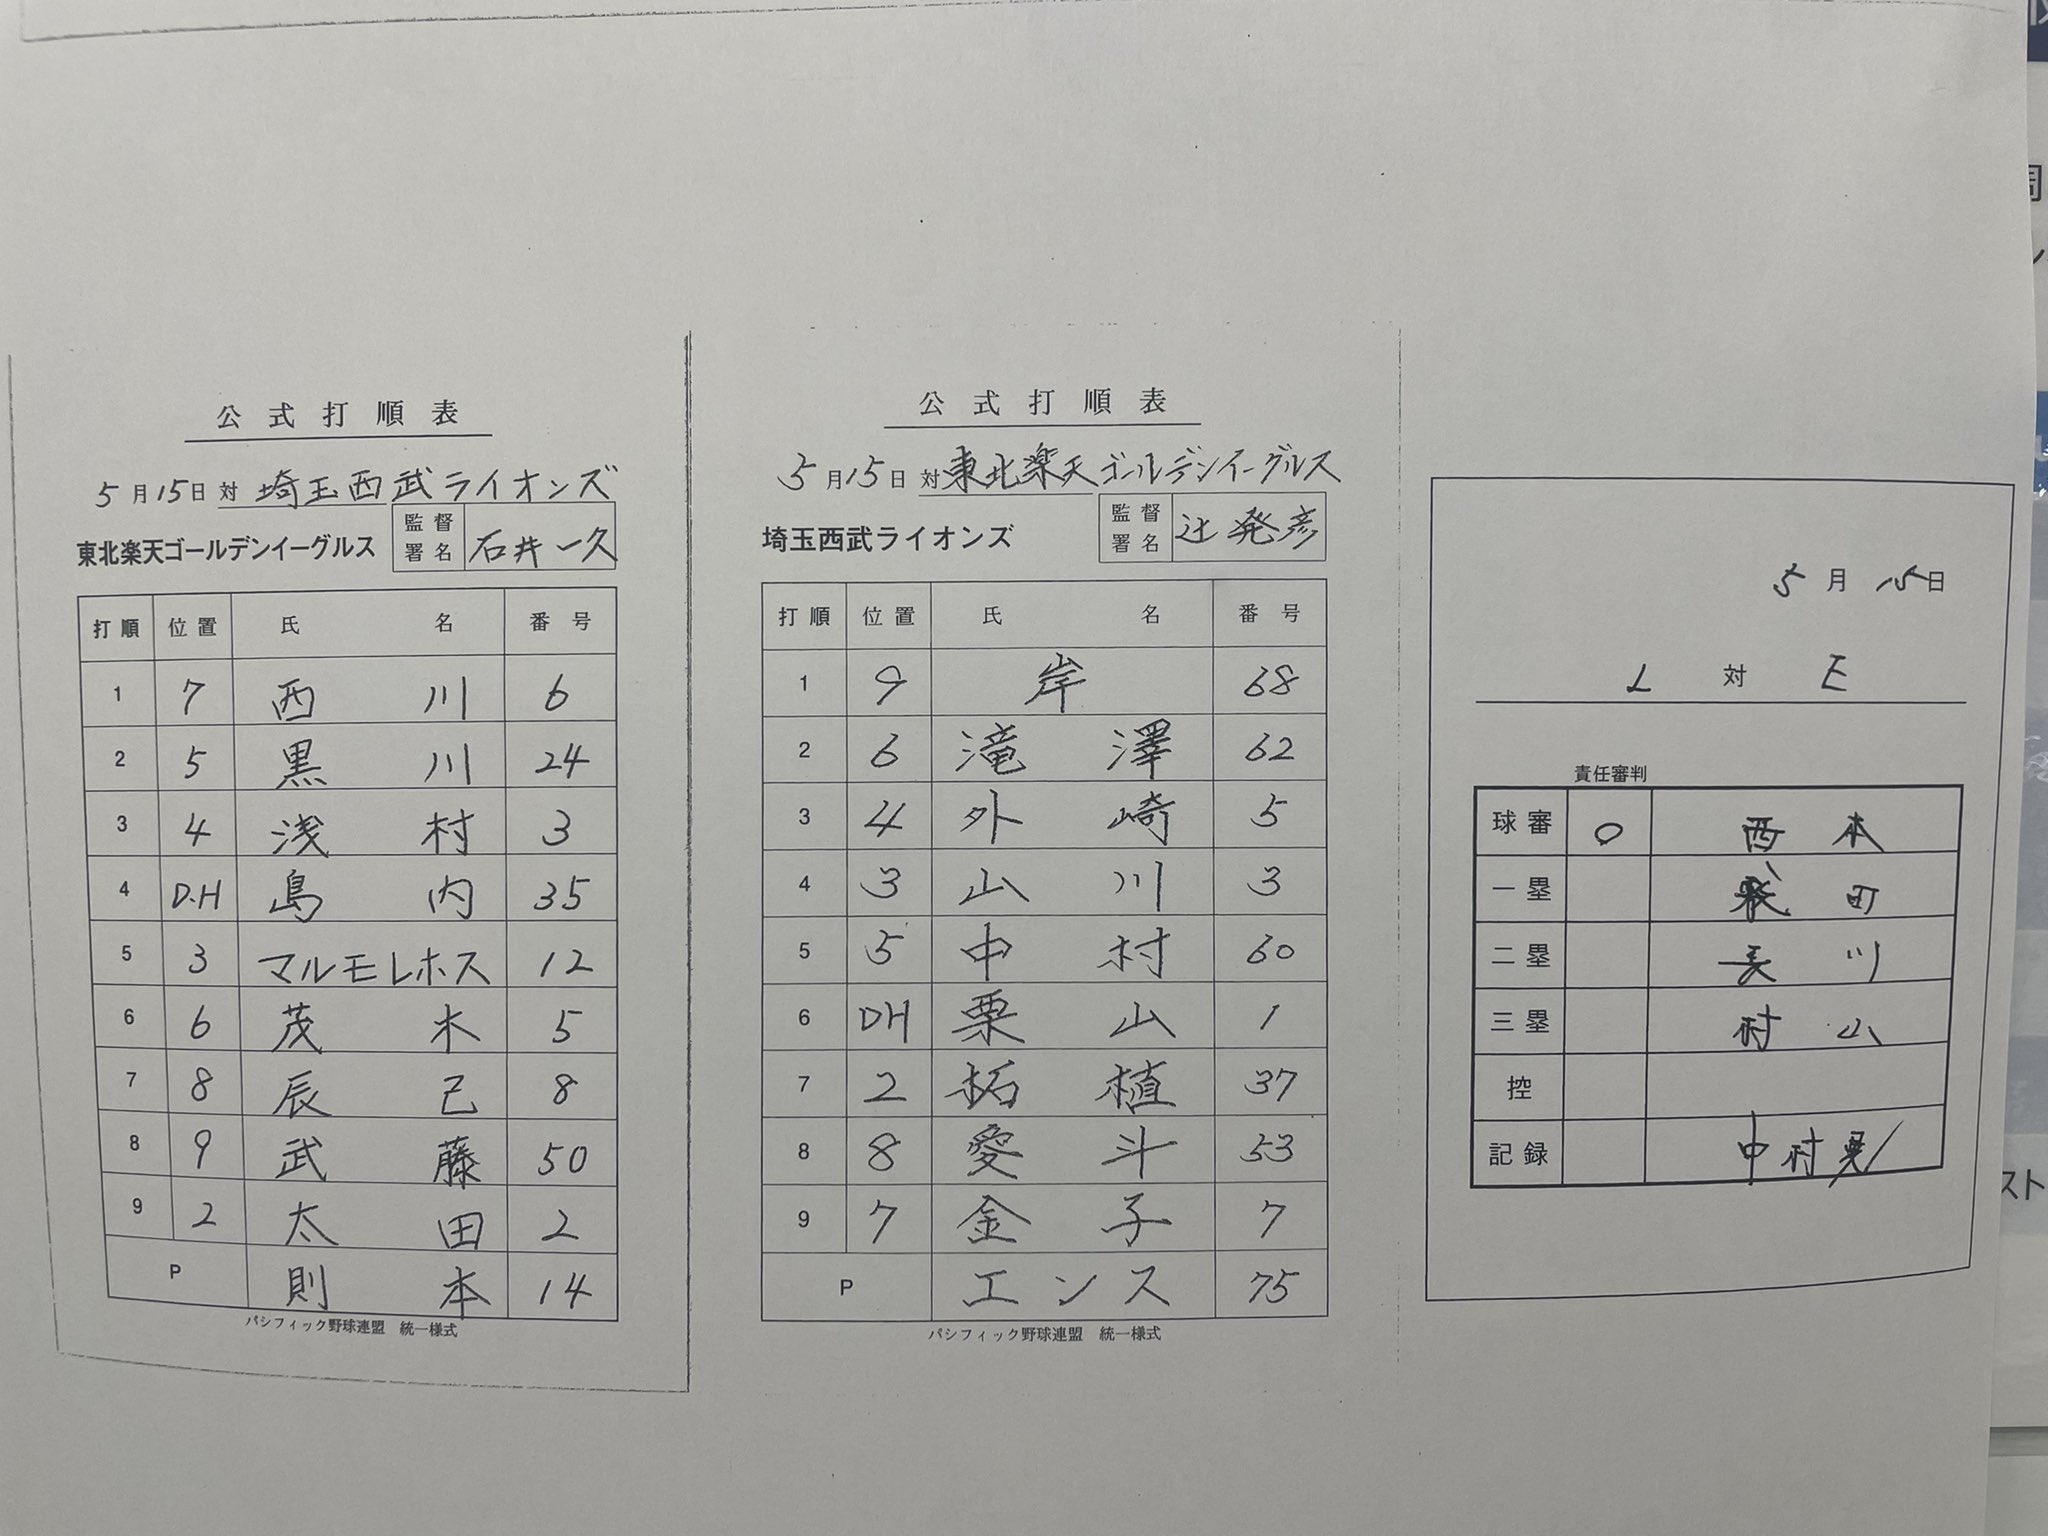 公式打順表
5月15日 対 埼玉西武ライオンズ
東北楽天ゴールデンイーグルス 監督署名 石井一久
打順 位置 氏名 番号
1 7 西川 6
2 5 黒川 24
3 4 浅村 3
4 D.H 島内 35
5 3 マルモレホス 12
6 6 茂木 5
7 8 辰己 8
8 9 武藤 50
9 2 太田 2
P 則本 14
パシフィック野球連盟 統一様式
公式打順表
5月15日 対 東北楽天ゴールデンイーグルス
埼玉西武ライオンズ 監督署名 辻発彦
打順 位置 氏名 番号
1 9 岸 68
2 6 滝澤 62
3 4 外崎 5
4 3 山川 3
5 5 中村 60
6 DH 栗山 1
7 2 柘植 37
8 8 愛斗 53
9 7 金子 7
P エンス 75
パシフィック野球連盟 統一様式
5月15日
L 対 E
責任審判
球審 ○ 西本
一塁 町
二塁 長川
三塁 村山
控
記録 中村晃
スト